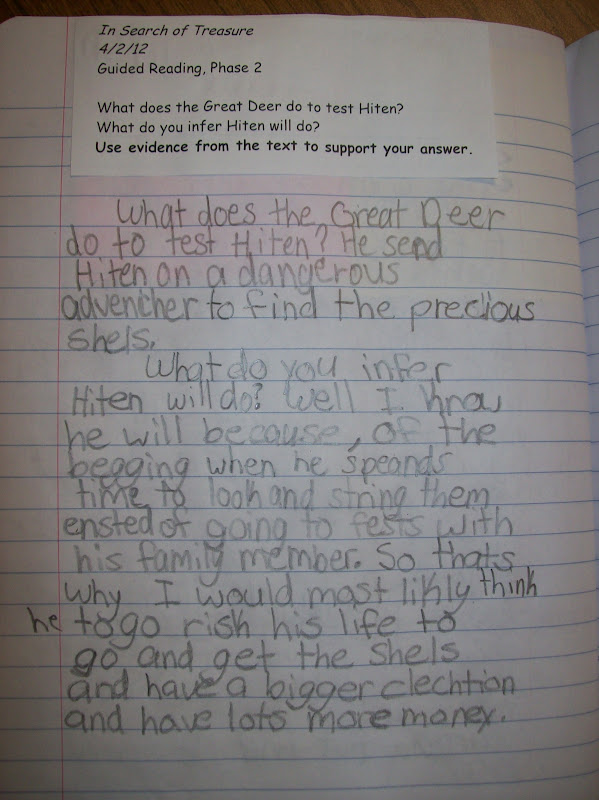 In Search of Treasure
4/2/12
Guided Reading, Phase 2
What does the Great Deer do to test Hiten?
What do you infer Hiten will do?
Use evidence from the text to support your answer.
What does the Great Deer
do to test Hiten? He send
Hiten on a dangerous
advencher to find the precious
shels.
What do you infer
Hiten will do? Well I know
he will because, of the
begging when he speands
time to look and string them
ensted of going to fests with
his family member. So thats
why I would most likly think
he to go risk his life to
go and get the shels
and have a bigger clechtion
and have lots more money.